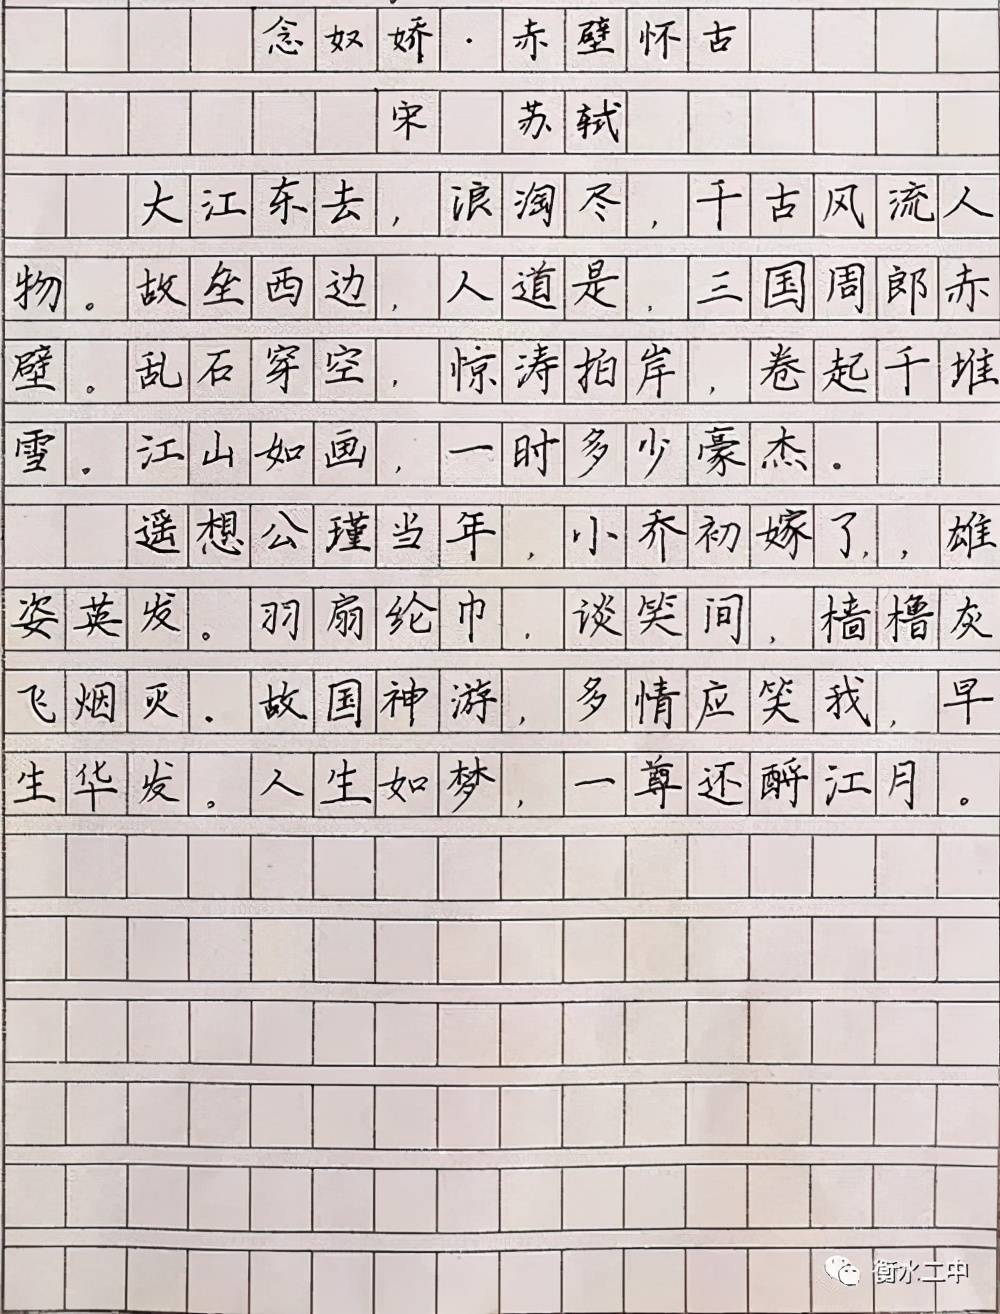 念奴娇·赤壁怀古
宋 苏轼
大江东去，浪淘尽，千古风流人
物。故垒西边，人道是，三国周郎赤
壁。乱石穿空，惊涛拍岸，卷起千堆
雪。江山如画，一时多少豪杰。
遥想公瑾当年，小乔初嫁了，雄
姿英发。羽扇纶巾，谈笑间，樯橹灰
飞烟灭。故国神游，多情应笑我，早
生华发。人生如梦，一尊还酹江月。
衡水二中